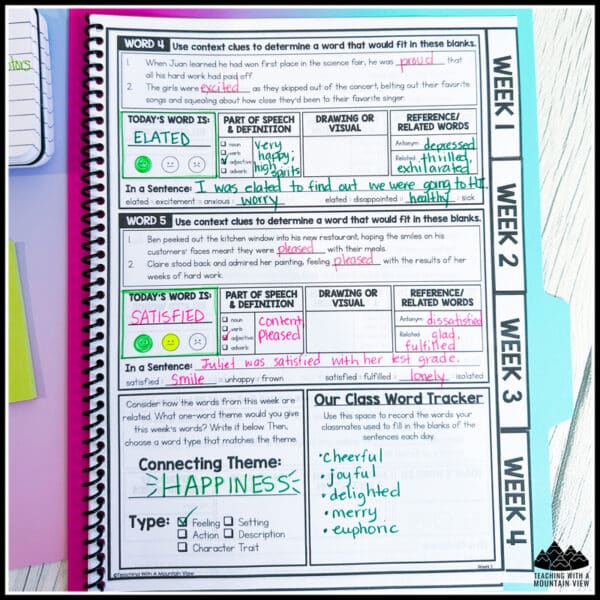 WORD 4 Use context clues to determine a word that would fit in these blanks.
1. When Juan learned he had won first place in the science fair, he was proud that
all his hard work had paid off.
2. The girls were excited as they skipped out of the concert, belting out their favorite
songs and squealing about how close they'd been to their favorite singer.
TODAY'S WORD IS: PART OF SPEECH & DEFINITION DRAWING OR VISUAL REFERENCE/ RELATED WORDS
ELATED
noun
verb
adjective
adverb
Very
happy;
high
spirits
Antonym: depressed
Related: thrilled,
exhilarated
In a Sentence: I was elated to find out we were going to HI.
elated : excitement :: anxious : worry elated : disappointed :: healthy : sick
WORD 5 Use context clues to determine a word that would fit in these blanks.
1. Ben peeked out the kitchen window into his new restaurant, hoping the smiles on his
customers' faces meant they were pleased with their meals.
2. Claire stood back and admired her painting, feeling pleased with the results of her
weeks of hard work.
TODAY'S WORD IS: PART OF SPEECH & DEFINITION DRAWING OR VISUAL REFERENCE/ RELATED WORDS
SATISFIED
noun
verb
adjective
adverb
Content,
pleased
Antonym: dissatisfied
Related: glad,
fulfilled
In a Sentence: Juliet was satisfied with her test grade.
satisfied : smile :: unhappy : frown satisfied : fulfilled :: lonely : isolated
Consider how the words from this week are
related. What one-word theme would you give
this week's words? Write it below. Then,
choose a word type that matches the theme.
Connecting Theme:
HAPPINESS
Type: Feeling Setting
Action Description
Character Trait
Our Class Word Tracker
Use this space to record the words your
classmates used to fill in the blanks of the
sentences each day.
•cheerful
•joyful
•delighted
•merry
•euphoric
©Teaching With A Mountain View
WEEK 1
WEEK 2
WEEK 3
WEEK 4
TEACHING WITH A
MOUNTAIN VIEW